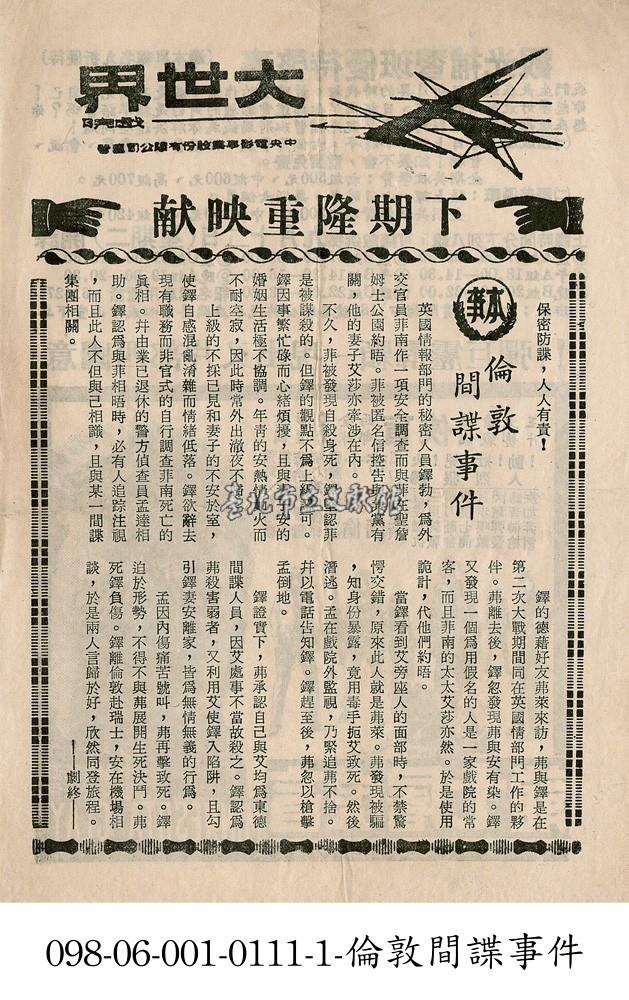 大世界
戲院
中央電影事業股份有限公司直營
下期隆重映献
保密防諜，人人有責！
本事
倫敦
間諜事件
英國情報部門的秘密人員鐸勃，為外
交官員菲南作一項安全調查而與菲在聖詹
姆士公園約晤。菲被匿名信控告與共黨有
關，他的妻子艾莎亦牽涉在內。
不久，菲被發現自殺身死，鐸堅認菲
是被謀殺的。但鐸的觀點不為上級認可。
鐸因事繁忙碌而心緒煩擾，且與妻子安的
婚姻生活極不協調。年青的安熱情如火而
不耐空寂，因此時常外出澈夜不歸。
上級的不採己見和妻子的不安於室，
使鐸自感混亂淆雜而情緒低落。鐸欲辭去
現有職務而非官式的自行調查菲南死亡的
眞相。幷由業已退休的警方偵查員孟達相
助。鐸認為與菲相晤時，必有人追踪注視
，而且此人不但與己相識，且與某一間諜
集團相關。
鐸的德藉好友弗萊來訪，弗與鐸是在
第二次大戰期間同在英國情部門工作的夥
伴。弗離去後，鐸忽發現弗與安有染。鐸
又發現一個爲用假名的人是一家戲院的常
客，而且菲南的太太艾莎亦然。於是使用
詭計，代他們約晤。
當鐸看到艾旁座人的面部時，不禁驚
愕交錯，原來此人就是弗萊。弗發現被騙
，知身份暴露，竟用毒手扼艾致死。然後
潛逃。孟在戲院外監視，乃緊追弗不捨。
幷以電話告知鐸。鐸趕至後，弗忽以槍擊
孟倒地。
鐸證實下，弗承認自己與艾均爲東德
間諜人員，因艾處事不當故殺之。鐸認爲
弗殺害弱者，又利用艾使鐸入陷阱，且勾
引鐸妻安離家，皆爲無情無義的行爲。
孟因內傷痛苦號叫，弗再擊致死。鐸
迫於形勢，不得不與弗展開生死決鬥。弗
死鐸負傷。鐸離倫敦赴瑞士，安在機場相
談，於是兩人言歸於好，欣然同登旅程。
——劇終——
臺北市立文獻館
098-06-001-0111-1-倫敦間諜事件